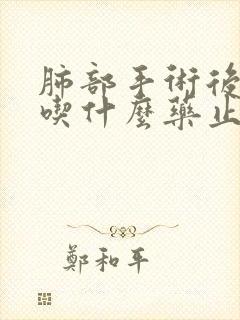 肺部手術後
喫什麼藥止
鄭和平